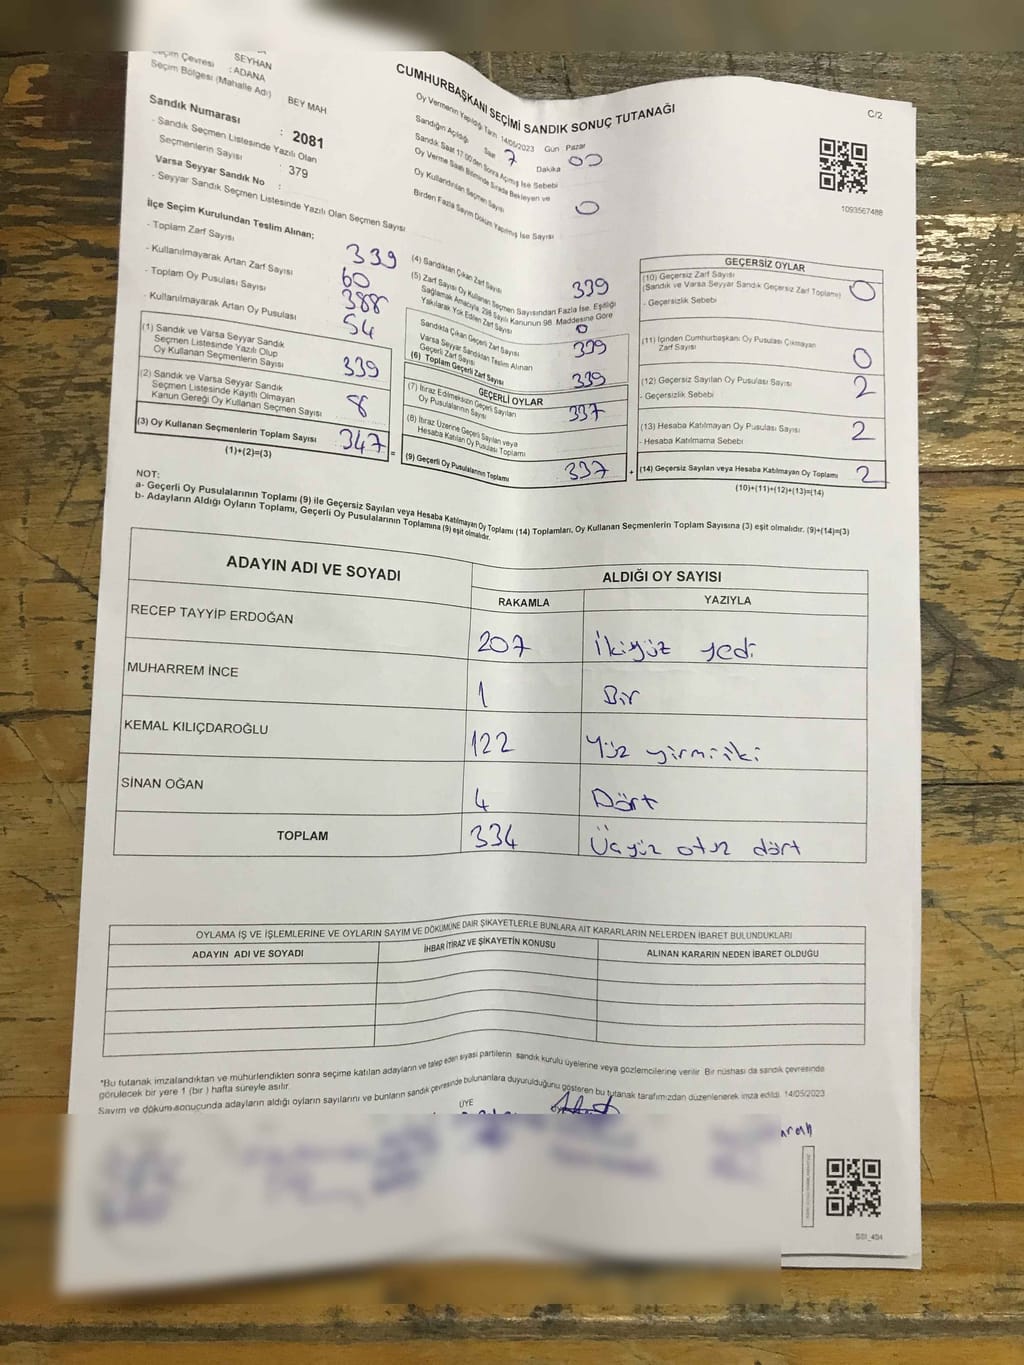 SEYHAN
Seçim Çevresi : ADANA
Seçim Bölgesi (Mahalle Adı) BEY MAH
Sandık Numarası : 2081
- Sandık Seçmen Listesinde Yazılı Olan Seçmenlerin Sayısı : 379
Varsa Seyyar Sandık No :
- Seyyar Sandık Seçmen Listesinde Yazılı Olan Seçmen Sayısı
CUMHURBAŞKANI SEÇİMİ SANDIK SONUÇ TUTANAĞI
C/2
Oy Vermenin Yapıldığı Tarih 14/05/2023 Gün Pazar
Sandığın Açıldığı Saat 7 Dakika 00
Sandık Saat 17:00'den Sonra Açılmış İse Sebebi
Oy Verme Saati Bitiminde Sırada Bekleyen ve
Oy Kullandırılan Seçmen Sayısı 0
Birden Fazla Sayım Döküm Yapılmış İse Sayısı
1093567488
İlçe Seçim Kurulundan Teslim Alınan;
- Toplam Zarf Sayısı 339
- Kullanılmayarak Artan Zarf Sayısı 60
- Toplam Oy Pusulası Sayısı 388
- Kullanılmayarak Artan Oy Pusulası 54
(1) Sandık ve Varsa Seyyar Sandık
Seçmen Listesinde Yazılı Olup
Oy Kullanan Seçmenlerin Sayısı 339
(2) Sandık ve Varsa Seyyar Sandık
Seçmen Listesinde Kayıtlı Olmayan
Kanun Gereği Oy Kullanan Seçmen Sayısı 8
(3) Oy Kullanan Seçmenlerin Toplam Sayısı 347 =
(1)+(2)=(3)
(4) Sandıktan Çıkan Zarf Sayısı 339
(5) Zarf Sayısı Oy Kullanan Seçmen Sayısından Fazla İse, Eşitliği
Sağlamak Amacıyla, 298 Sayılı Kanunun 98. Maddesine Göre
Yakılarak Yok Edilen Zarf Sayısı 0
Sandıkta Çıkan Geçerli Zarf Sayısı 339
Varsa Seyyar Sandıktan Teslim Alınan
Geçerli Zarf Sayısı
(6) Toplam Geçerli Zarf Sayısı 339
GEÇERLİ OYLAR
(7) İtiraz Edilmeksizin Geçerli Sayılan
Oy Pusulalarının Sayısı 337
(8) İtiraz Üzerine Geçerli Sayılan veya
Hesaba Katılan Oy Pusulası Toplamı
(9) Geçerli Oy Pusulalarının Toplamı 337 +
GEÇERSİZ OYLAR
(10) Geçersiz Zarf Sayısı
(Sandık ve Varsa Seyyar Sandık Geçersiz Zarf Toplamı) 0
- Geçersizlik Sebebi
(11) İçinden Cumhurbaşkanı Oy Pusulası Çıkmayan
Zarf Sayısı 0
(12) Geçersiz Sayılan Oy Pusulası Sayısı 2
- Geçersizlik Sebebi
(13) Hesaba Katılmayan Oy Pusulası Sayısı 2
- Hesaba Katılmama Sebebi
(14) Geçersiz Sayılan veya Hesaba Katılmayan Oy Toplamı 2
(10)+(11)+(12)+(13)=(14)
NOT:
a- Geçerli Oy Pusulalarının Toplamı (9) ile Geçersiz Sayılan veya Hesaba Katılmayan Oy Toplamı (14) Toplamları, Oy Kullanan Seçmenlerin Toplam Sayısına (3) eşit olmalıdır. (9)+(14)=(3)
b- Adayların Aldığı Oyların Toplamı, Geçerli Oy Pusulalarının Toplamına (9) eşit olmalıdır.
ADAYIN ADI VE SOYADI ALDIĞI OY SAYISI
RAKAMLA YAZIYLA
RECEP TAYYİP ERDOĞAN 207 İkiyüz yedi
MUHARREM İNCE 1 Bir
KEMAL KILIÇDAROĞLU 122 Yüz yirmi iki
SİNAN OĞAN 4 Dört
TOPLAM 334 Üçyüz otuz dört
OYLAMA İŞ VE İŞLEMLERİNE VE OYLARIN SAYIM VE DÖKÜMÜNE DAİR ŞİKAYETLERLE BUNLARA AİT KARARLARIN NELERDEN İBARET BULUNDUKLARI
ADAYIN ADI VE SOYADI İHBAR İTİRAZ VE ŞİKAYETİN KONUSU ALINAN KARARIN NEDEN İBARET OLDUĞU
*Bu tutanak imzalandıktan ve mühürlendikten sonra seçime katılan adayların ve talep eden siyasi partilerin sandık kurulu üyelerine veya gözlemcilerine verilir. Bir nüshası da sandık çevresinde
görülecek bir yere 1 (bir) hafta süreyle asılır.
Sayım ve döküm sonucunda adayların aldığı oyların sayılarını ve bunların sandık çevresinde bulunanlara duyurulduğunu gösteren bu tutanak tarafımızdan düzenlenerek imza edildi. 14/05/2023
ÜYE